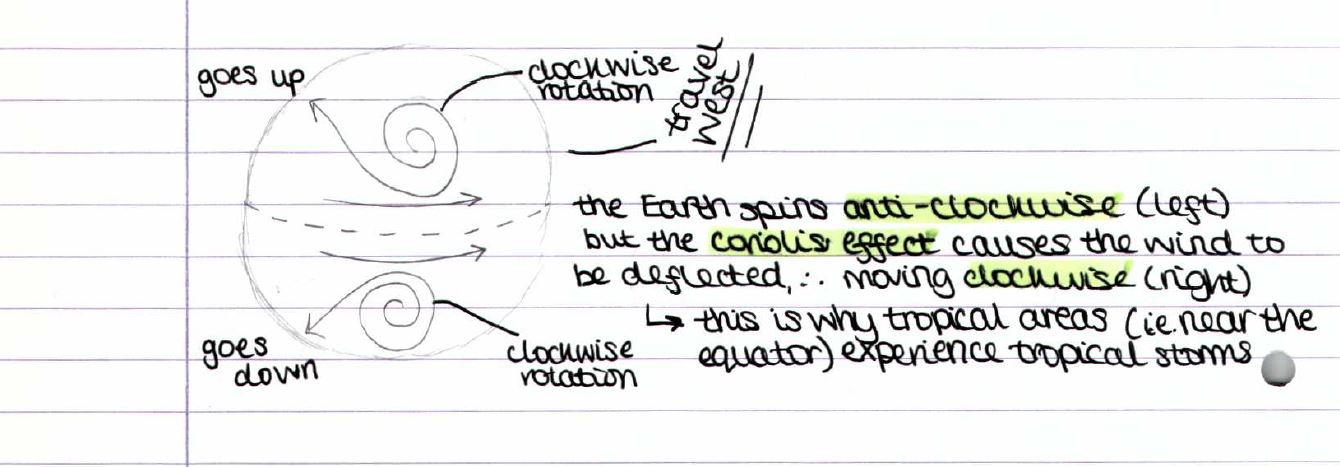 goes up
clockwise
rotation
travel
west
the Earth spins anti-clockwise (left)
but the coriolis effect causes the wind to
be deflected, ∴ moving clockwise (right)
↳ this is why tropical areas (ie. near the
equator) experience tropical storms
goes
down
clockwise
rotation